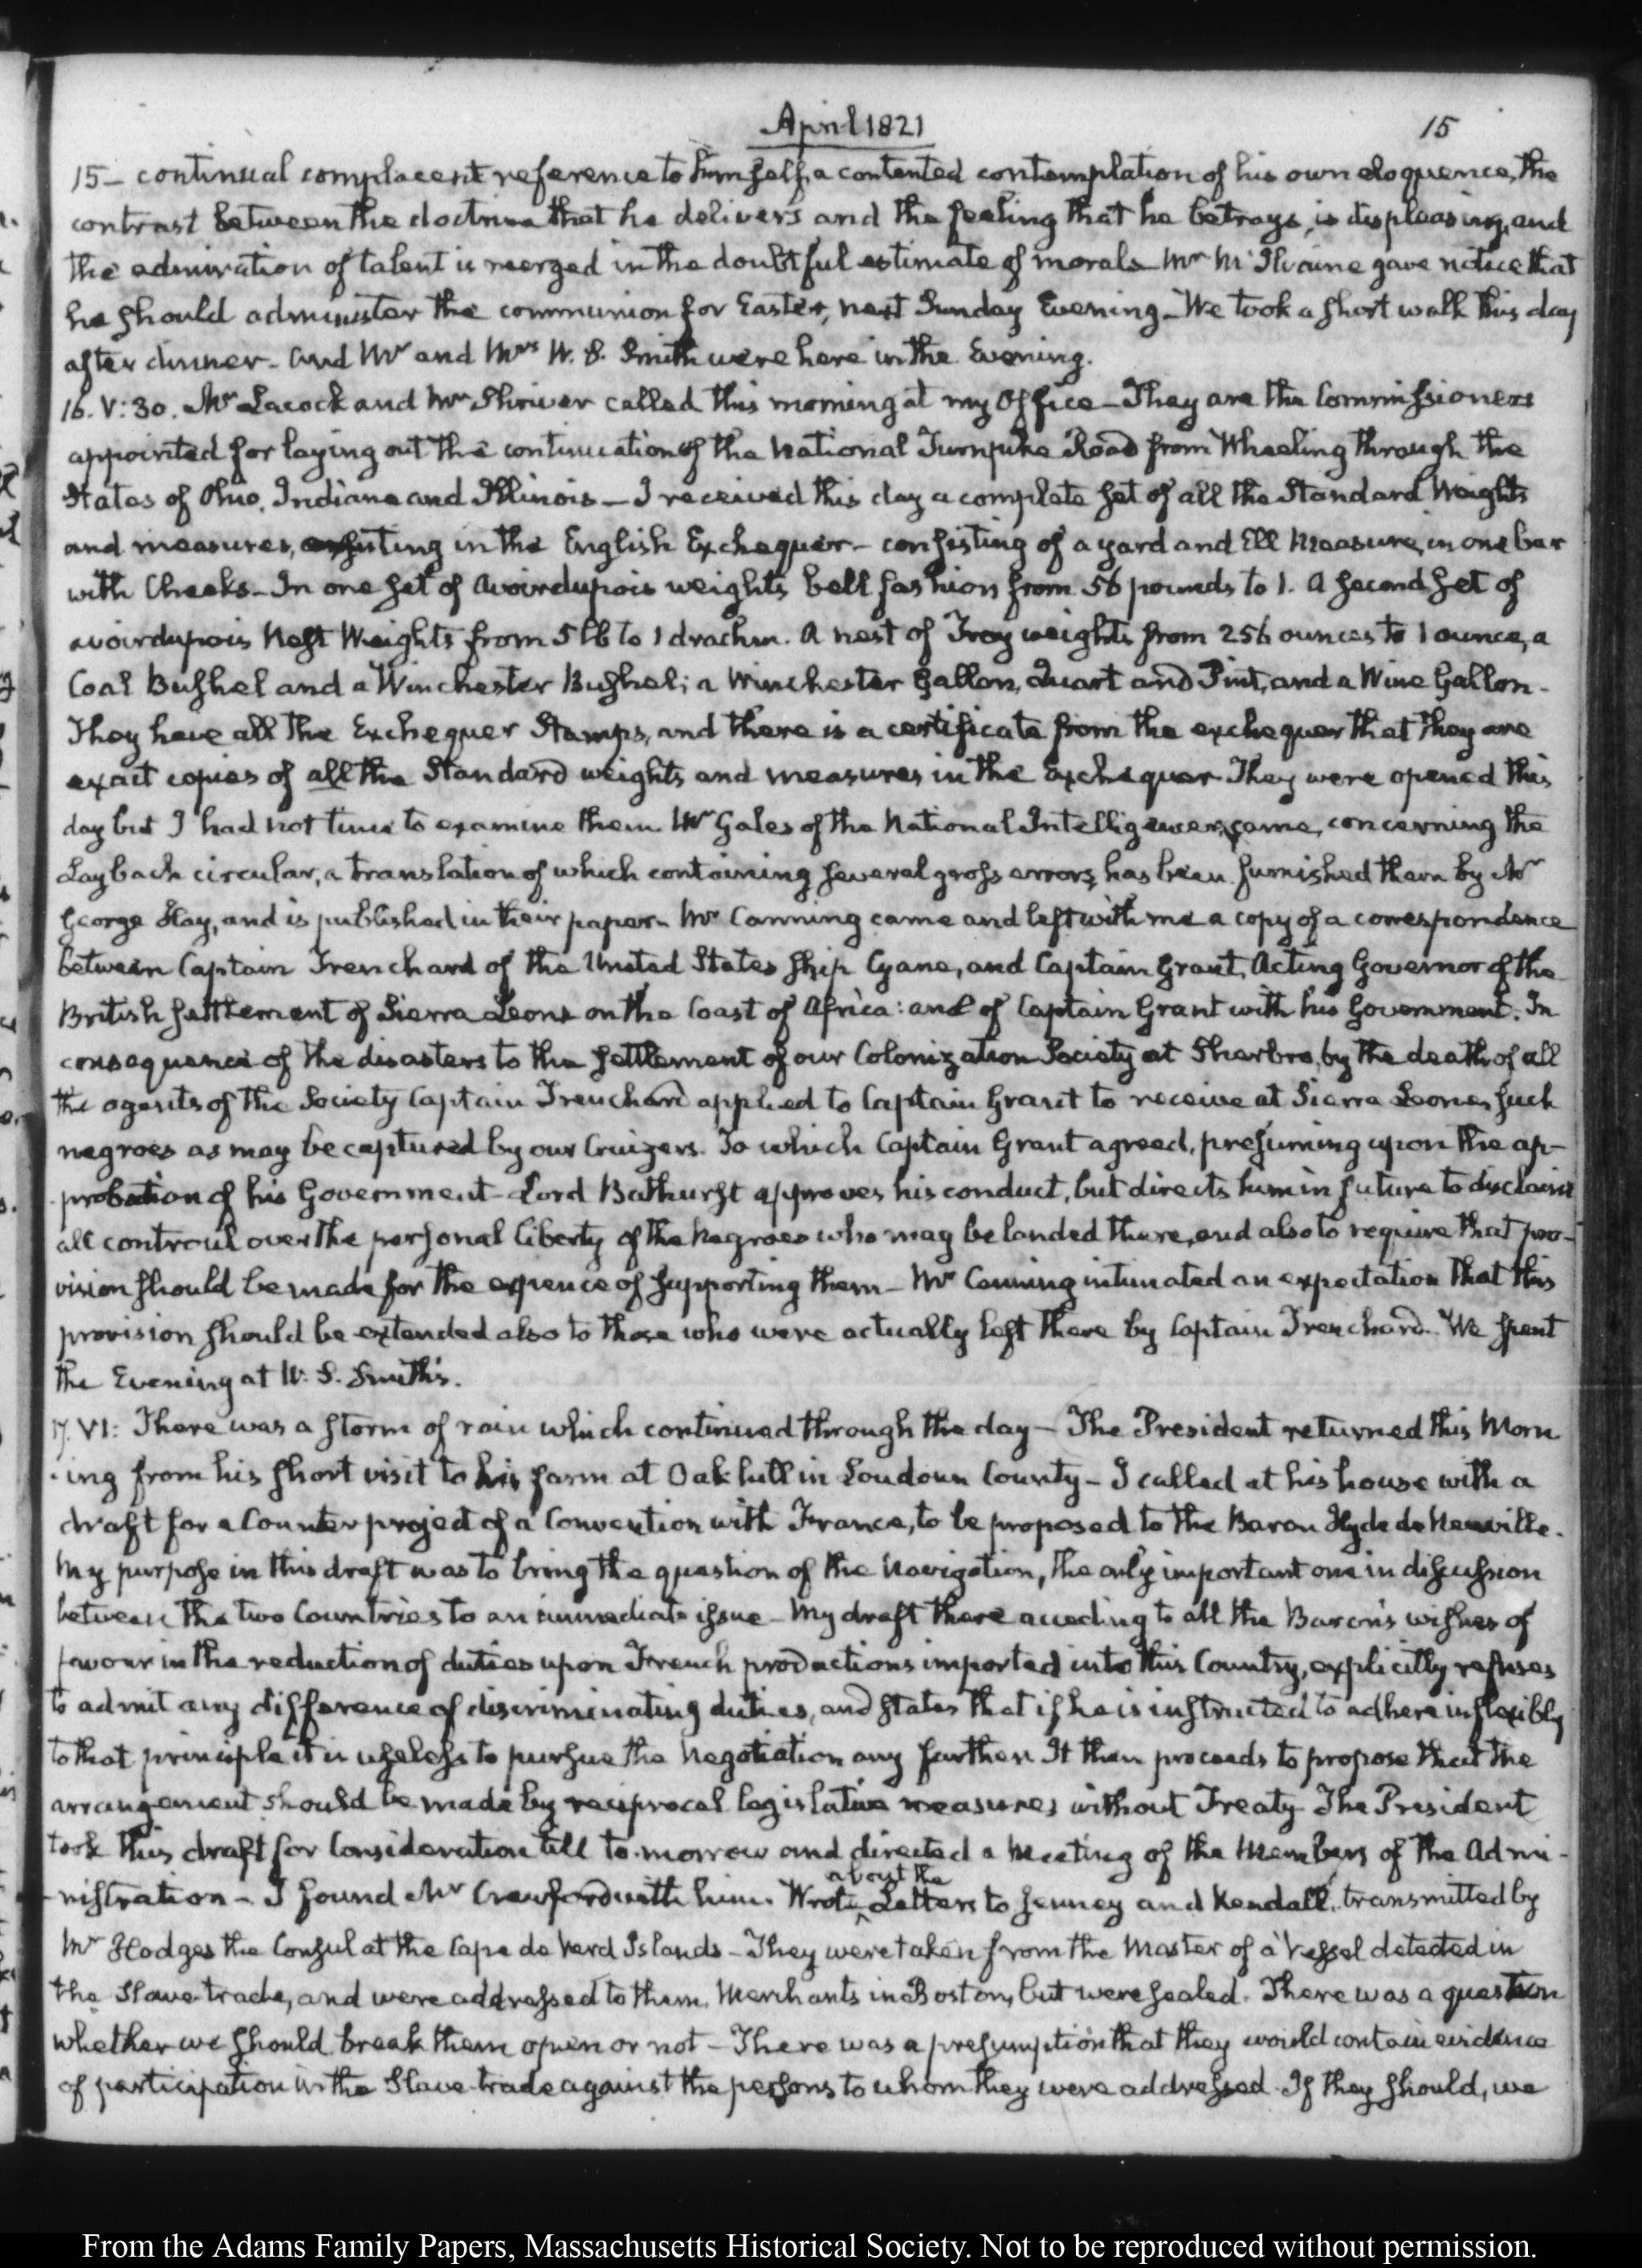 April 1821
15
15- continual complacent reference to himself, a contented contemplation of his own eloquence, the
contrast between the doctrine that he delivers and the feeling that he betrays, is displeasing, and
the admiration of talent is merged in the doubtful estimate of morals Mr. McIlvaine gave notice that
he should administer the communion for Easter, next Sunday Evening_ We took a short walk this day
after dinner- and Mr and Mrs W. S. Smith were here in the Evening.
16. V:30. Mr Lacock and Mr Shriver called this morning at my Office_ They are the Commissioners
appointed for laying out the continuation of the National Turnpike Road from Wheeling through the
States of Ohio, Indiana and Illinois_ I received this day a complete set of all the Standard Weights
and measures, existing in the English Exchequer- consisting of a yard and Ell Measure, in one bar
with Cheeks_ In one set of avoirdupois weights bell fashion from 56 pounds to 1. A second set of
avoirdupois Nest Weights from 5 lb to 1 drachm. A nest of Troy weights from 256 ounces to 1 ounce, a
Coal Bushel and a Winchester Bushel; a Winchester Gallon, Quart and Pint, and a Wine Gallon-
They have all the Exchequer Stamps, and there is a certificate from the exchequer that they are
exact copies of all the Standard weights and measures in the Exchequer They were opened this
day but I had not time to examine them. Mr Gales of the National Intelligencer, came, concerning the
Laybach circular, a translation of which containing several gross errors, has been furnished them by Mr
George Hay, and is published in their paper- Mr Canning came and left with me a copy of a correspondence
between Captain Trenchard of the United States Ship Cyane, and Captain Grant, Acting Governor of the
British Settlement of Sierra Leone on the Coast of Africa: and of Captain Grant with his Government. In
consequence of the disasters to the settlement of our Colonization Society at Sherbro, by the death of all
the agents of the Society Captain Trenchard applied to Captain Grant to receive at Sierra Leone, such
negroes as may be captured by our Cruizers. To which Captain Grant agreed, presuming upon the ap-
probation of his Government- Lord Bathurst approves his conduct, but directs him in future to disclaim
all controul over the personal liberty of the Negroes who may be landed there, and also to require that pro-
vision should be made for the expence of supporting them_ Mr Canning intimated an expectation that this
provision should be extended also to those who were actually left there by Captain Trenchard. We spent
the Evening at W. S. Smith's.
17. VI: There was a storm of rain which continued through the day- The President returned this Morn
-ing from his short visit to his farm at Oak hill in Loudoun County- I called at his house with a
draft for a Counter project of a Convention with France, to be proposed to the Baron Hyde de Neuville.
My purpose in this draft was to bring the question of the Navigation, the only important one in discussion
between the two Countries to an immediate issue- My draft there acceding to all the Baron's wishes of
favour in the reduction of duties upon French productions imported into this Country, explicitly refuses
to admit any difference of discriminating duties, and states that if he is instructed to adhere inflexibly
to that principle it is useless to pursue the Negotiation any further It then proceeds to propose that the
arrangement should be made by reciprocal legislative measures without Treaty- The President
took this draft for Consideration till to-morrow and directed a Meeting of the Members of the Admi-
about the
-nistration- I found Mr Crawford with him. Wrote Letters to Jenney and Kendall, transmitted by
Mr Hodges the Consul at the Cape de Verd Islands- They were taken from the Master of a Vessel detected in
the Slave-trade, and were addressed to them, Merchants in Boston, but were sealed. There was a question
whether we should break them open or not- There was a presumption that they would contain evidence
of participation in the Slave-trade against the persons to whom they were addressed. If they should, we
From the Adams Family Papers, Massachusetts Historical Society. Not to be reproduced without permission.